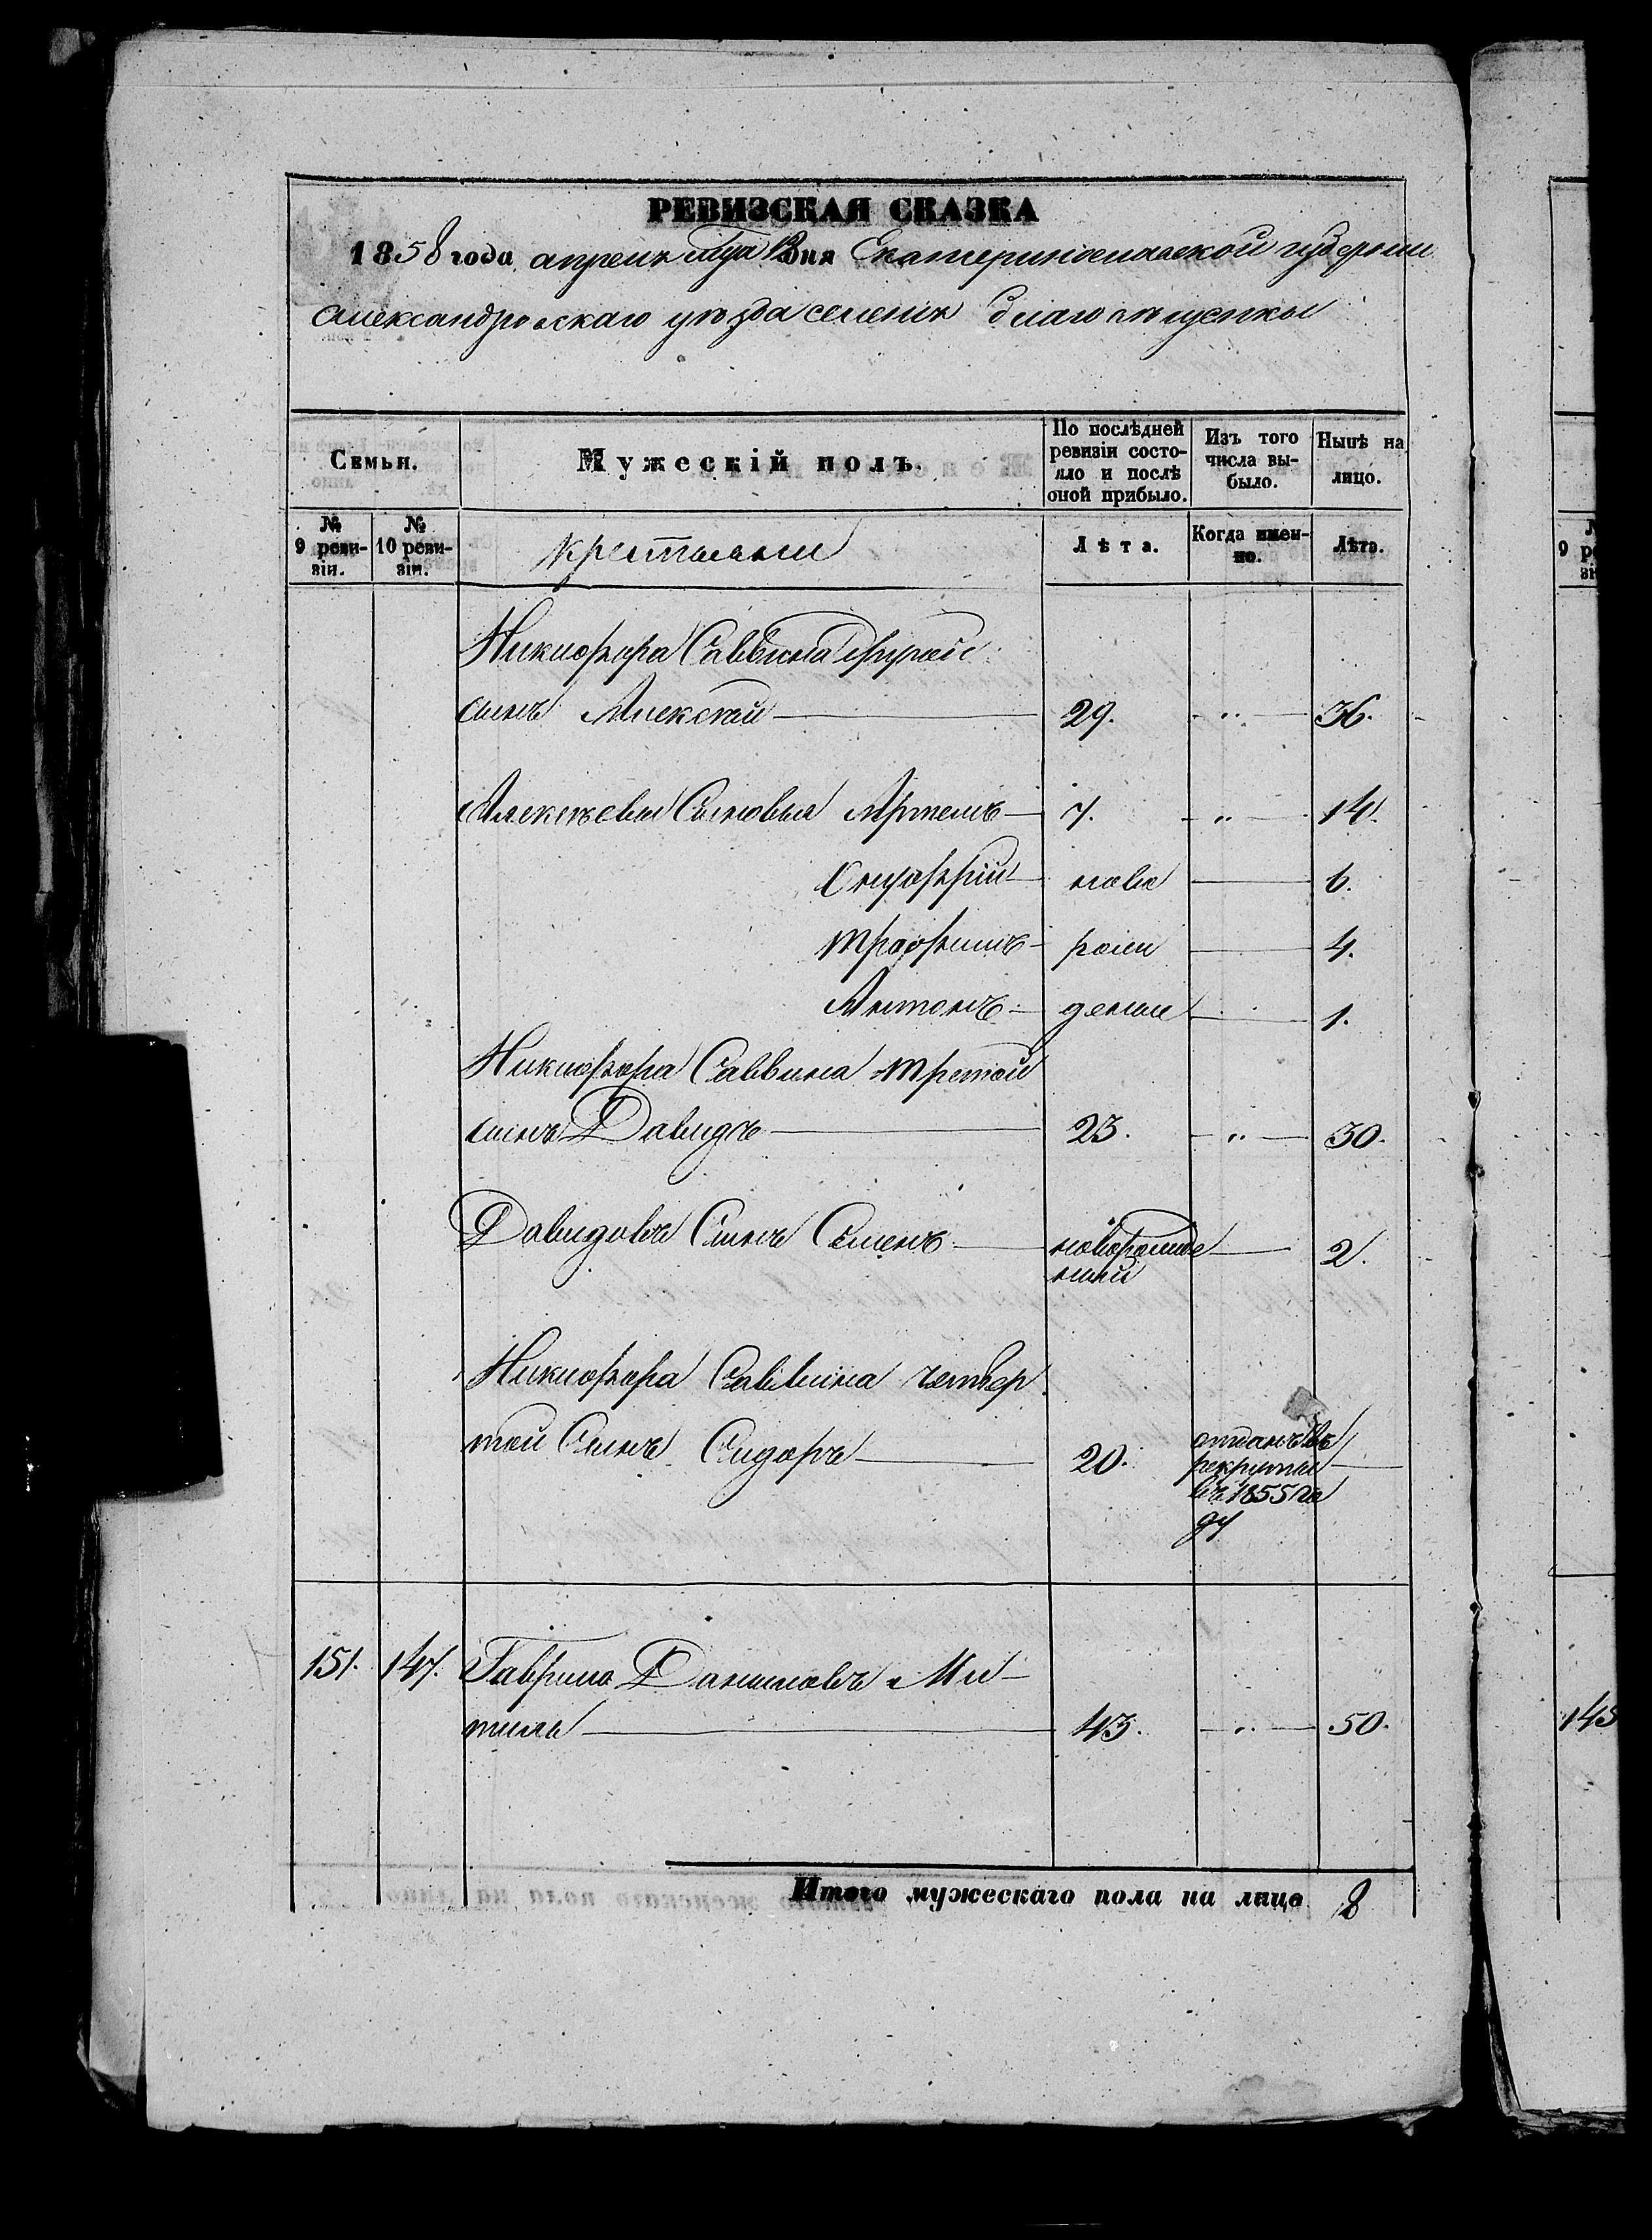 РЕВИЗСКАЯ СКАЗКА
1858 года апреля дня Екатеринославской губернии
Александровскаго уезда селения
Семьи.
Мужескій полъ.
По послѣдней ревизіи состояло и послѣ оной прибыло.
Изъ того числа выбыло.
Нынѣ на лицо.
№ 9 ревизіи.
№ 10 ревизіи.
крестьяне
Лѣта.
Когда именно.
Лѣта.
Никифора Саввина другой
сынъ Алексѣй 29. " 36.
Алексѣевы Сыновья Артемъ 7. " 14.
Онуфрій ново 6.
Трофимъ рож 4.
Антонъ денные 1.
Никифора Саввина третой
сынъ Давидъ 23. " 30.
Давидовъ Сынъ Семенъ новорожде 2.
нный
Никифора Саввина четвер
той Сынъ Сидоръ 20. отданъ въ
рекруты
въ 1855 го
ду
151. 147. Гаврило Даниловъ Ми-
тила 43. " 50.
Итого мужескаго пола на лицо 8
9
145